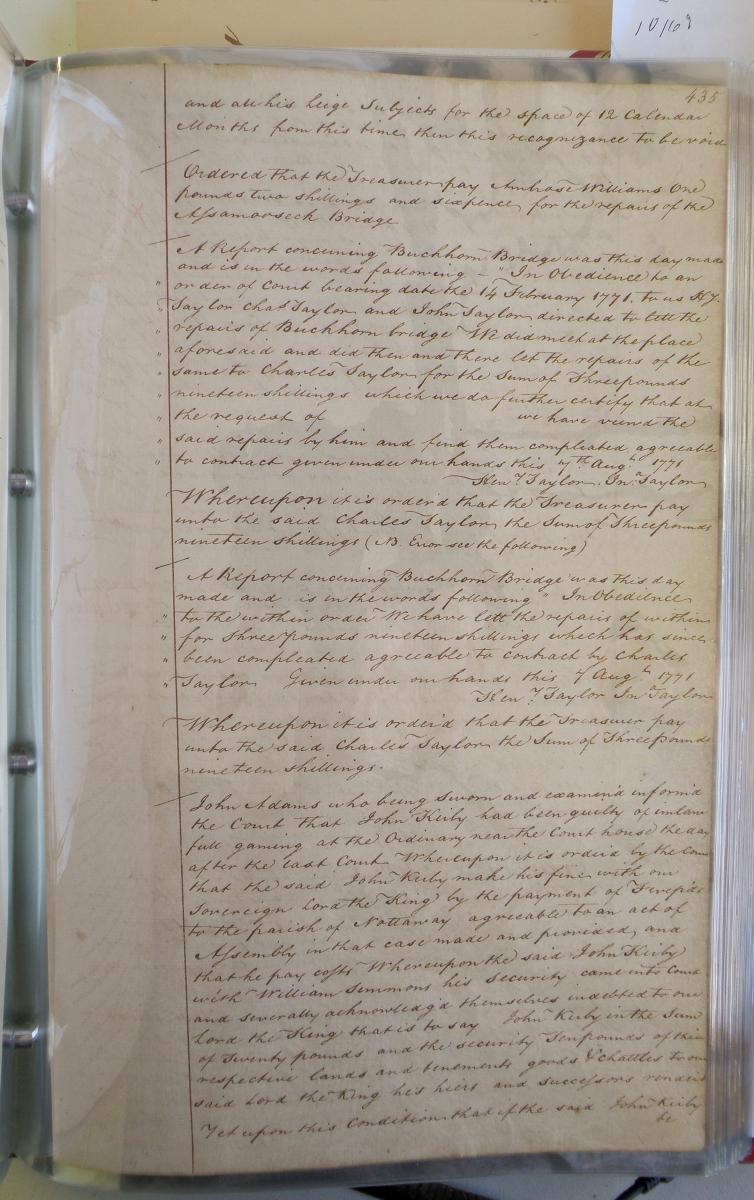 10/69
435
and all his liege Subjects for the space of 12 Calendar
Months from this time then this recognizance to be void
Ordered that the Treasurer pay Ambrose Williams One
pounds two shillings and sixpence for the repairs of the
Assamooseck Bridge
A Report concerning Buckhorn Bridge was this day made
and is in the words following – " In Obedience to an
" order of Court bearing date the 14 February 1771. to us Hy.
" Taylor Chas Taylor and John Taylor directed to lett the
" repairs of Buckhorn bridge We did meet at the place
" aforesaid and did then and there let the repairs of the
" same to Charles Taylor for the Sum of Three pounds
" nineteen shillings which we do further certify that at
" the request of we have veiwd the
" said repairs by him and find them compleated agreeable
" to contract given under our hands this 7th Augt 1771
Heny Taylor. Jno Taylor
Whereupon it is order'd that the Treasurer pay
unto the said Charles Taylor the Sum of Three pounds
nineteen shillings (NB. Error see the following)
A Report concerning Buckhorn Bridge was this day
made and is in the words following " In Obedience
" to the within order We have lett the repairs of within
" for three pounds nineteen shillings which has since
" been compleated agreeable to contract by Charles
" Taylor Given under our hands this 7 Augt 1771
Heny Taylor Jno Taylor
Whereupon it is order'd that the Treasurer pay
unto the said Charles Taylor the Sum of Three pounds
nineteen shillings.
John Adams who being sworn and examin'd inform'd
the Court that John Kirby had been guilty of unlaw
full gaming at the Ordinary near the Court house the day
after the last Court Whereupon it is order'd by the Court
that the said John Kirby make his fine with our
Sovereign Lord the King by the payment of Five pds
to the parish of Nottaway agreeable to an act of
Assembly in that case made and provided, and
that he pay costs Whereupon the said John Kirby
with William Simmons his security came into Court
and severally acknowledg'd themselves indebted to our
Lord the King that is to say John Kirby in the Sum
of Twenty pounds and the security Ten pounds of their
respective lands and tenements goods & chattles to our
said Lord the King his heirs and successors render'd
Yet upon this Condition that if the said John Kirby
be